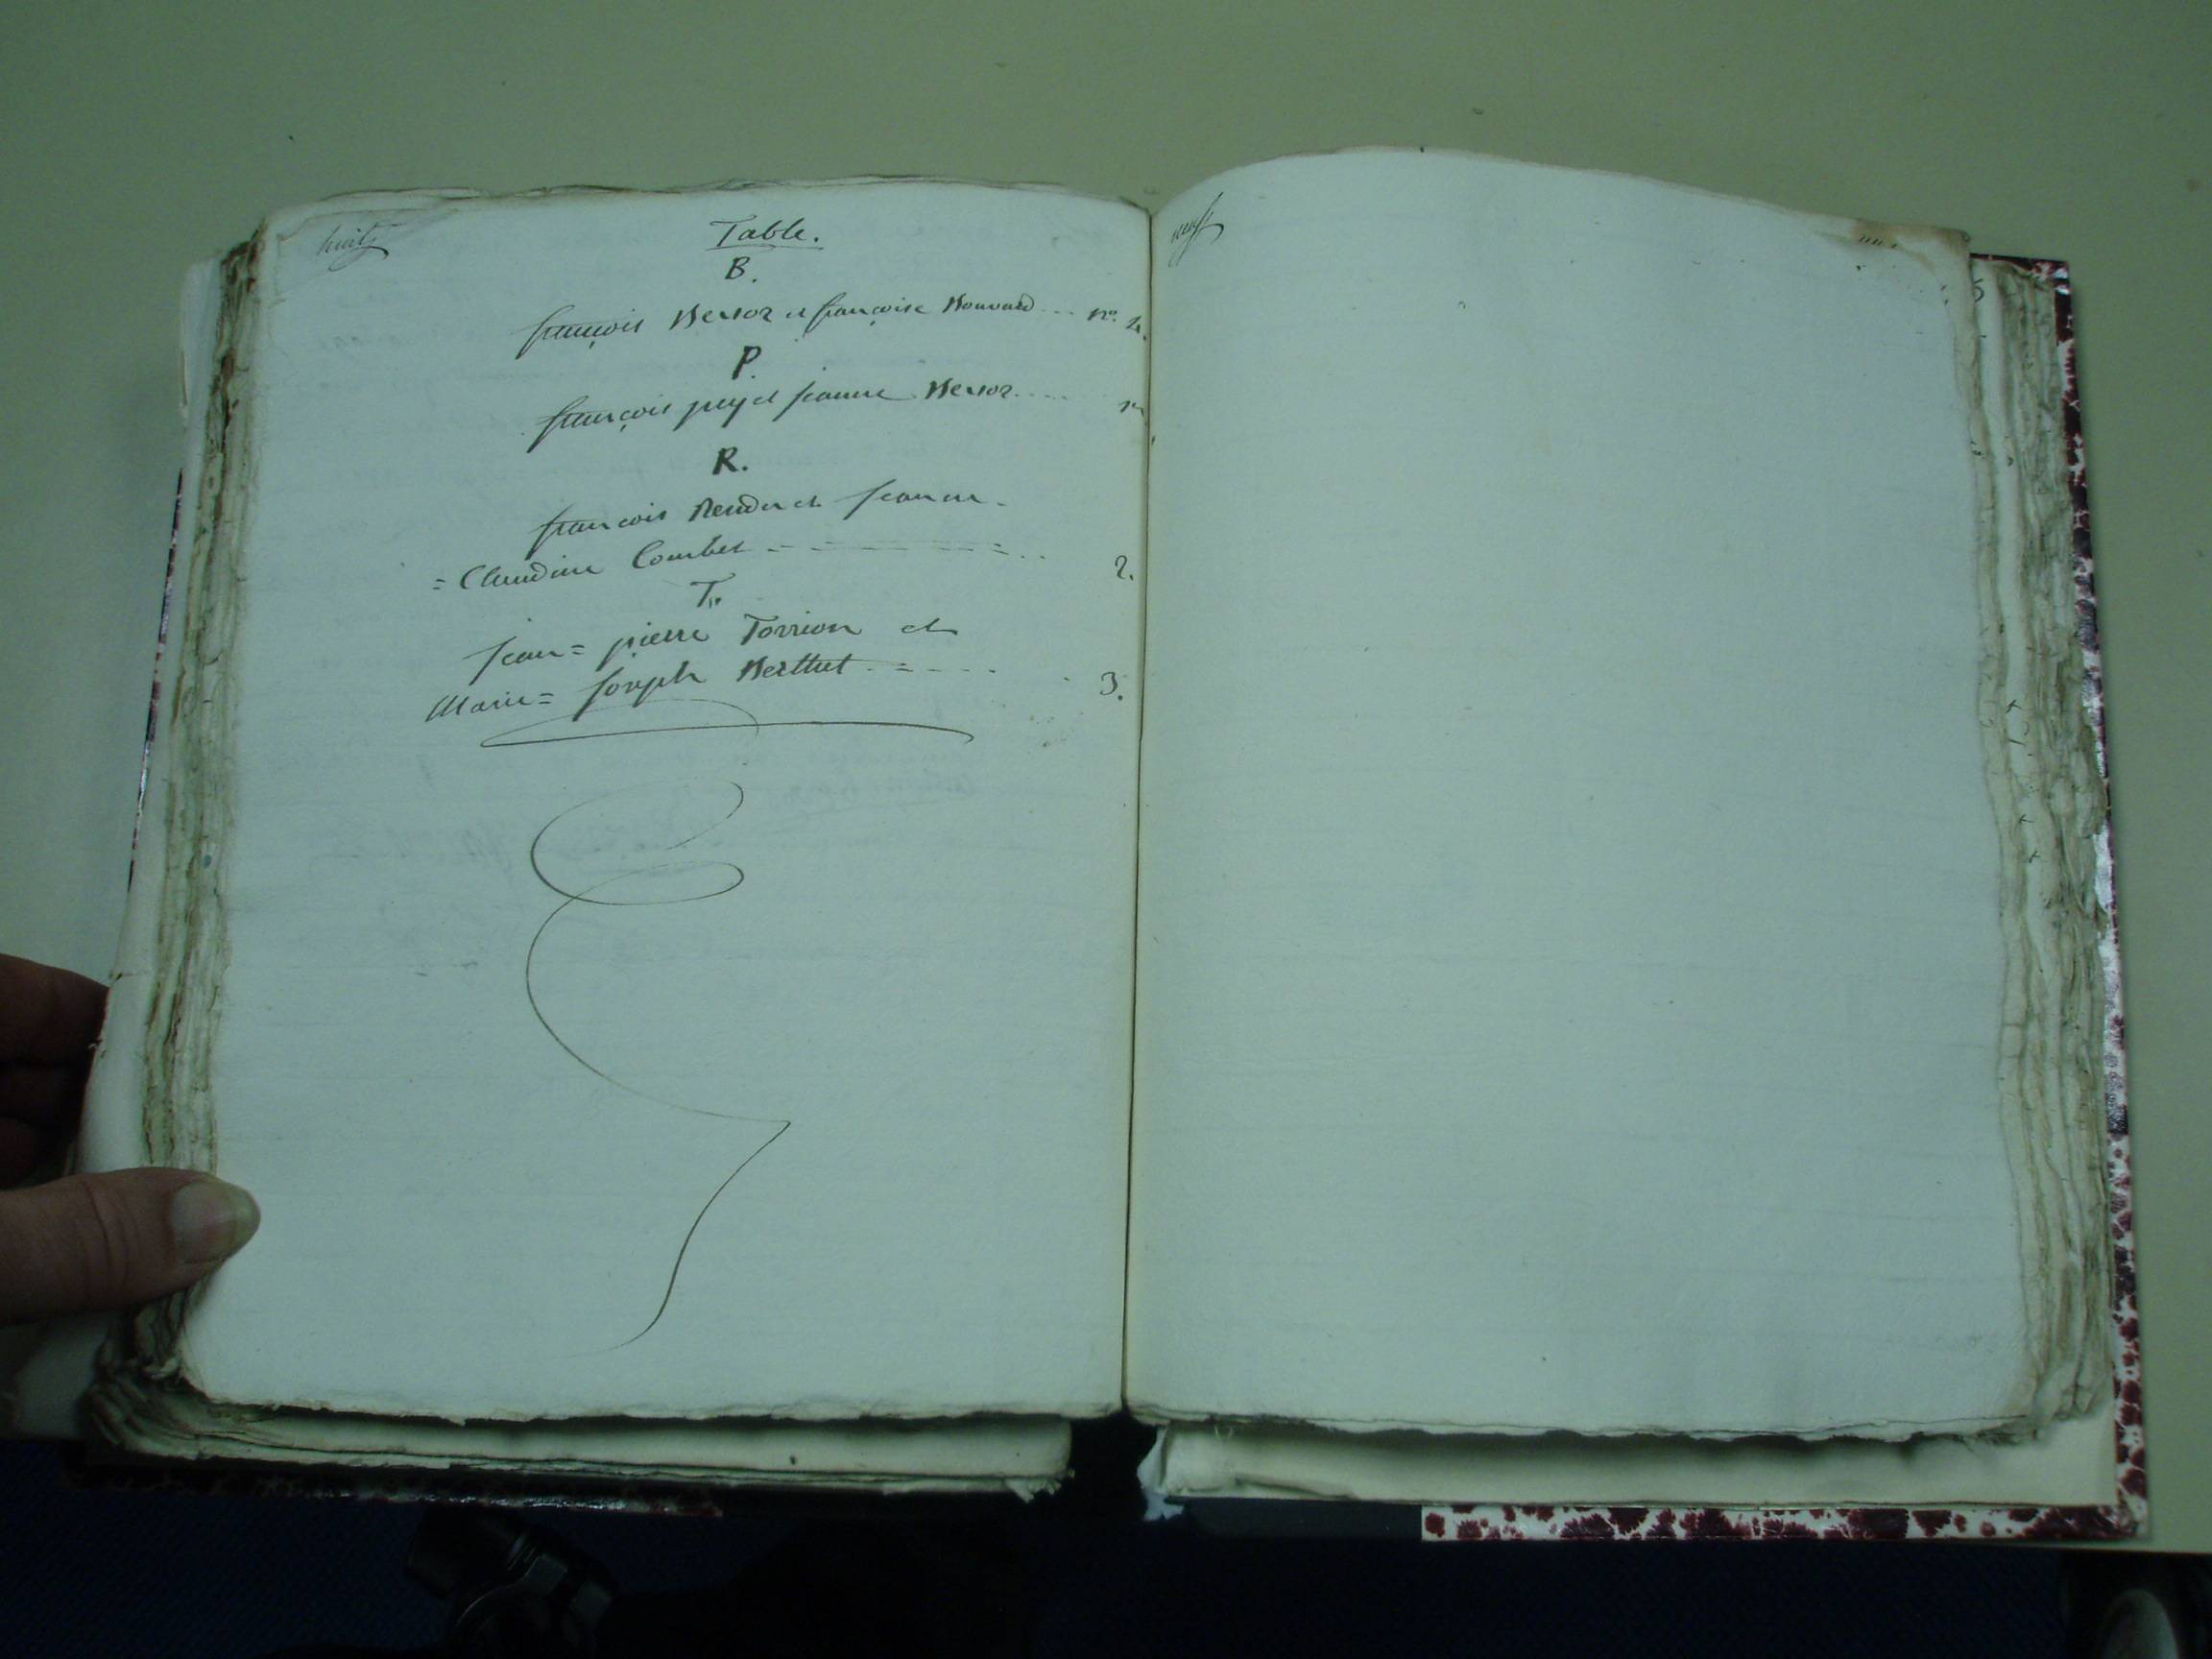 huit
Table.
B.
françois Bersoz et françoise Bouvard ... no. 4.
P.
françois puy et jeanne Bersoz ....
R.
françois Rendu et jeanne =
= Claudine Combet
2.
T.
jean = pierre Torrion et
Marie = joseph Berthet
3.
neuf